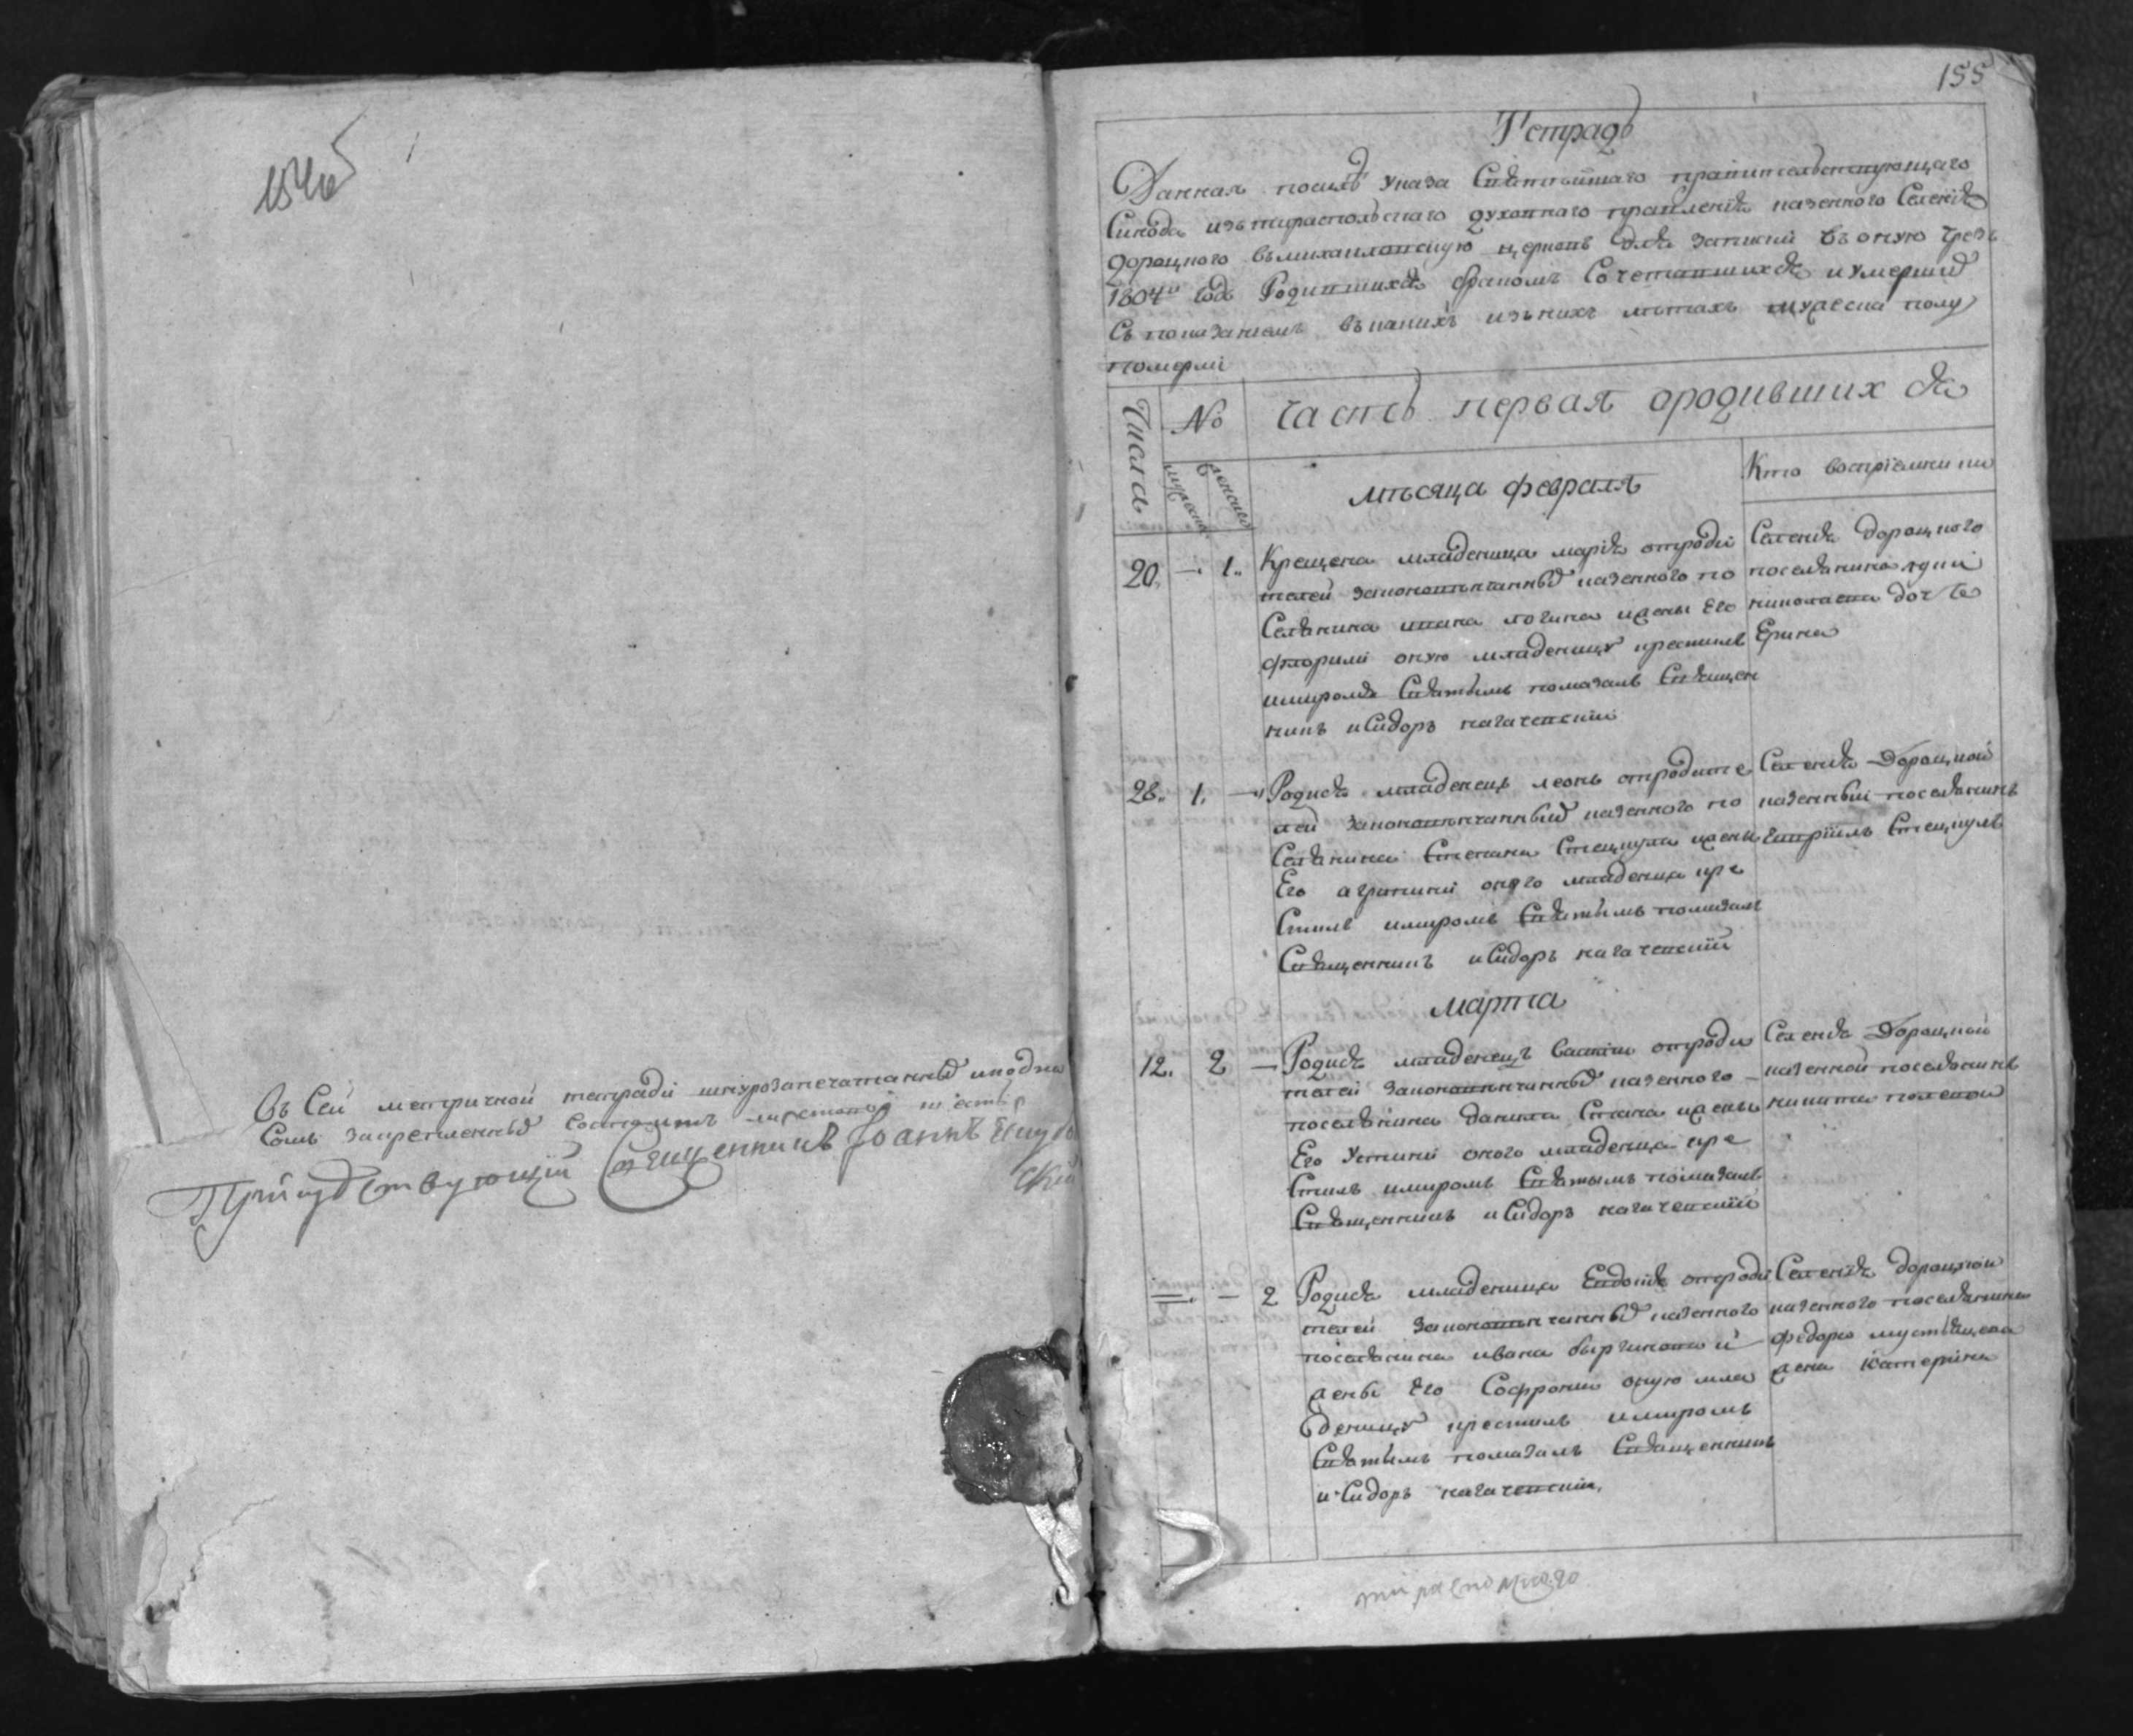 154об
Въ Сей метричной тетради шнурозапечатанныхъ иподпи
Сомъ закрепленныхъ Состоитъ листовъ
Присудствующій Священникъ Іоаннъ
скій
155
Тетрадь
Данная посилѣ указа Святѣйшаго правительствующаго
Синода изътираспольскаго духовнаго правленія казенного Селенія
дороцкого въмихаиловскую церковь для записки въоную чрезъ
1804й годъ Родившихся бракомъ Сочетавшихся иумершихъ
Съ показаніемъ въкакихъ изънихъ лѣтахъ мужеска полу
померли
Числа
№
Часть первая ородившихся
мужеска
женска
мѣсяца февраля
Кто воспріемники
20. — 1.. Крещена младеница марія отроди
телей законовѣнчанныхъ казенного по
Селянина ивана логина ижены Его
флорики оную младеницу крестилъ
имиромъ Святымъ помазалъ Священ
никъ иСидоръ нагачевскій
Селенія дороцкого
поселянина
николаева дочь
Ерина
28.. 1. — Родися младенецъ леонъ отродите
лей законовѣнчанныхъ казенного по
Селянина Степана Стецкула ижены
Его агрипини оного младенца кре
Стилъ имиромъ Святымъ помазалъ
Священникъ иСидоръ нагачевскій
Селенія Дороцкой
казенный поселянинъ
Гавріилъ Стецкулъ
марта
12. 2 — Родися младенецъ василій отроди
телей законовѣнчанныхъ казенного —
поселянина данила Стана ижены
Его Устиніи оного младенца кре
Стилъ имиромъ Святымъ помазалъ
Священникъ иСидоръ нагачевскій
Селенія Дороцкой
казенной поселянинъ
никита
=. — 2 Родися младеница Евдокія отроди
телей законовѣнчанныхъ казенного
поселянина ивана и
жены Его Софронии оную мла
деницу крестилъ имиромъ
Святымъ помазалъ Священникъ
иСидоръ нагачевскій,
Селенія дороцкой
казенного поселянина
федора мустяцева
жена Катерина